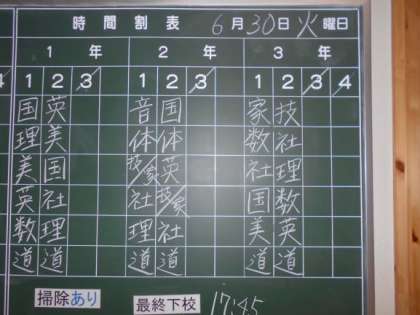 時間割表 6月30日火曜日
1年 2年 3年
4 1 2 3 1 2 3 1 2 3 4
国 英 音 国 家 技
理 美 体 体 数 社
美 国 技/家 英 社 理
英 社 社 技/家 国 数
数 理 理 社 美 英
道 道 道 道 道 道
掃除あり 最終下校 17:45